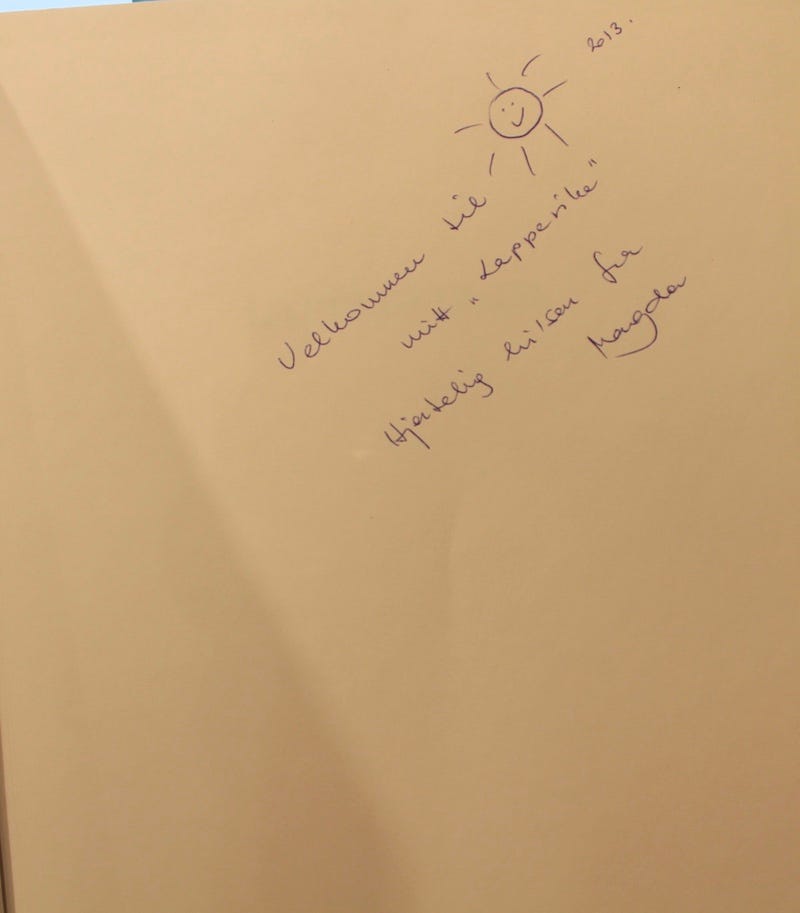 2013.
Velkommen til
mitt "Lapperike"
Hjertelig hilsen fra
Magda